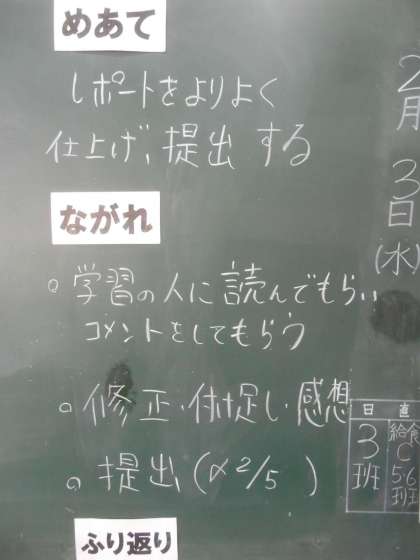 めあて
レポートをよりよく
仕上げ、提出する
ながれ
。学習の人に読んでもらい
コメントをしてもらう
。修正・付け足し・感想
。提出(〆2/5 )
ふり返り
2月3日(水)
日直
3班
給食
C
5・6
班